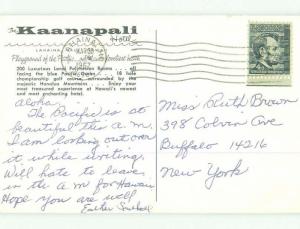 The Kaanapali
Hotel
LAHAINA
Playground of the Pacific
200 Luxurious Land Polynesian Rooms . . . all
facing the blue Pacific Ocean . . . 18 hole
championship golf course surrounded by the
majestic Haleakala Mountains . . . Enjoy your
most treasured stay at Hawaii's newest
and most enchanting hotel.
LAHAINA
1967
Aloha,
The Pacific is at
beautiful this a.m.
I am looking out over
it while writing.
Will hate to leave
in the a m for Hawaii
Hope you are well
Esther
Miss Ruth Brown
398 Colvin Ave
Buffalo 14216
New York